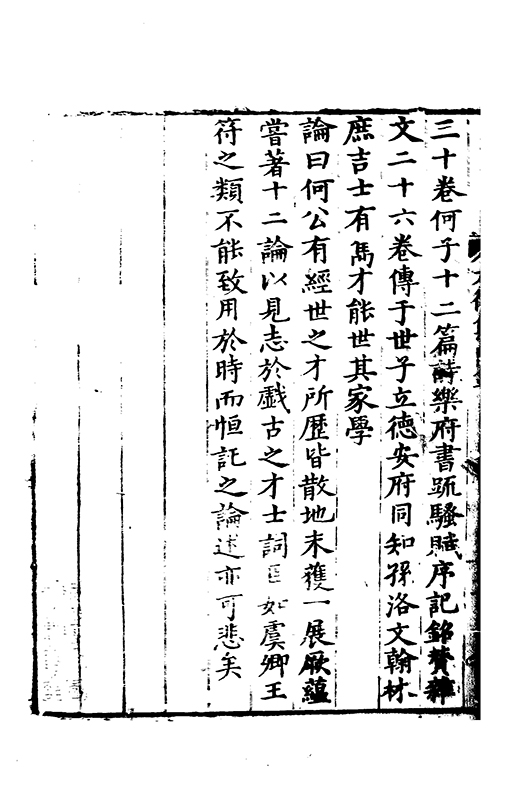 三十卷何子十二篇詩樂府書䟽騷賦序記銘賛雜
文二十六卷傳于世子立德安府同知孫洛文翰林
庶吉士有雋才能世其家學
論曰何公有經世之才所歷皆散地未獲一展厥蘊
嘗著十二論以見志於戲古之才士詞臣如虞卿王
符之類不能致用於時而恒託之論述亦可悲矣